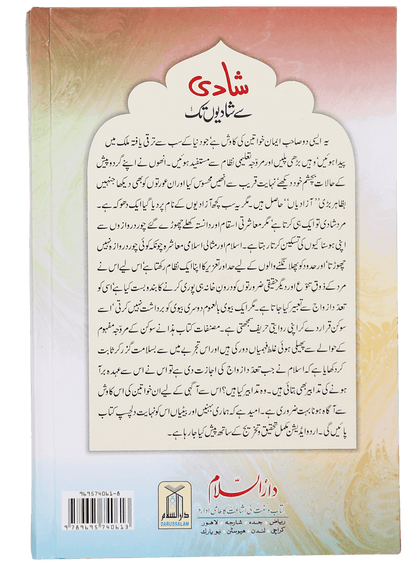 شادی
سے شادیوں تک
یہ ایسی دو صاحبِ ایمان خواتین کی کاوش ہے جو دنیا کے سب سے ترقی یافتہ ملک میں
پیدا ہوئیں، وہیں بڑھی پلیں اور مروجہ تعلیمی نظام سے مستفید ہوئیں۔ انھوں نے اپنے گرد و پیش
کے حالات بچشم خود دیکھے، نہایت قریب سے انھیں محسوس کیا اور ان عورتوں کو بھی دیکھا جنہیں
بظاہر بڑی ”آزادیاں“ حاصل ہیں۔ مگر یہ سب کچھ آزادیوں کے نام پر دیا گیا ایک دھوکہ ہے۔
مرد شادی تو ایک ہی کرتا ہے مگر معاشرتی اسقام اور دانستہ کھلے چھوڑے گئے چور دروازوں سے
اپنی ہوسناکیوں کی تسکین کرتا رہتا ہے۔ اسلام اور مثالی اسلامی معاشرہ چونکہ کوئی چور دروازہ نہیں
چھوڑتا اور حدود کو پھلانگنے والوں کے لیے حد اور تعزیر کا اپنا ایک نظام رکھتا ہے اس لیے اس نے
مرد کے ذوقِ تنوع اور دیگر حقیقی ضرورتوں کو درونِ خانہ ہی پوری کرنے کا بندوبست کیا ہے، اسی کو
تعدد ازواج سے تعبیر کیا جاتا ہے۔ مگر ایک بیوی بالعموم دوسری بیوی کو برداشت نہیں کرتی، اسے
سوکن قرار دے کر اپنی روایتی حریف سمجھتی ہے۔ مصنفات کتاب ہذا نے سوکن کے مروجہ مفہوم
کے حوالے سے پھیلی ہوئی غلط فہمیاں دور کی ہیں اور اس تجربے میں سے بسلامت گزر کر ثابت
کر دکھایا ہے کہ اسلام نے جب تعدد ازواج کی اجازت دی ہے تو اس نے اس سے عہدہ برآ
ہونے کی تدابیر بھی بتائی ہیں۔ وہ تدابیر کیا ہیں؟ اس سے آگہی کے لیے ان خواتین کی اس کاوش
سے آگاہ ہونا بہت ضروری ہے۔ امید ہے کہ ہماری بہنیں اور بیٹیاں اس کو نہایت دلچسپ کتاب
پائیں گی۔ اردو ایڈیشن مکمل تحقیق و تخریج کے ساتھ پیش کیا جا رہا ہے۔
دارالسلام
کتاب و سنت کی اشاعت کا عالمی ادارہ
ریاض جدہ شارجہ لاہور
کراچی لندن ہیوسٹن نیویارک
دارالسلام
DARUSSALAM
969574061-8
9789695740613